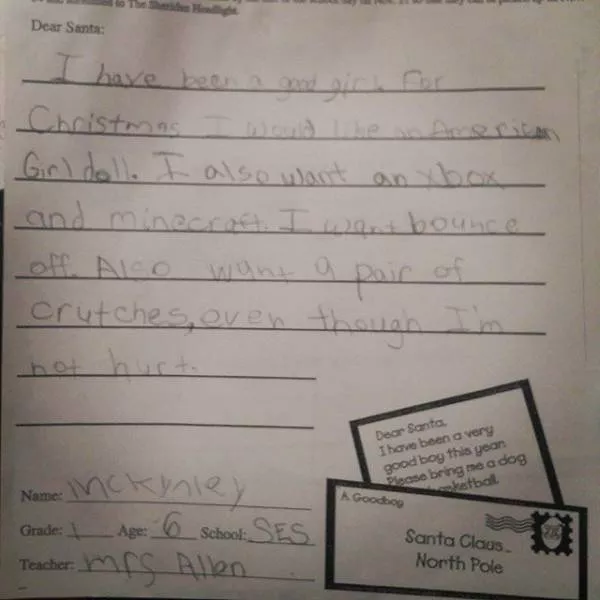 Dear Santa:
I have been a good girl. For
Christmas I would like an American
Girl doll. I also want an xbox
and minecraft. I want bounce
off. Also want a pair of
crutches, even though I'm
not hurt.
Dear Santa,
I have been a very
good boy this year.
Please bring me a dog
A. Goodboy
Santa Claus
North Pole
Name: McKynley
Grade: 1 Age: 6 School: SES
Teacher: Mrs Allen